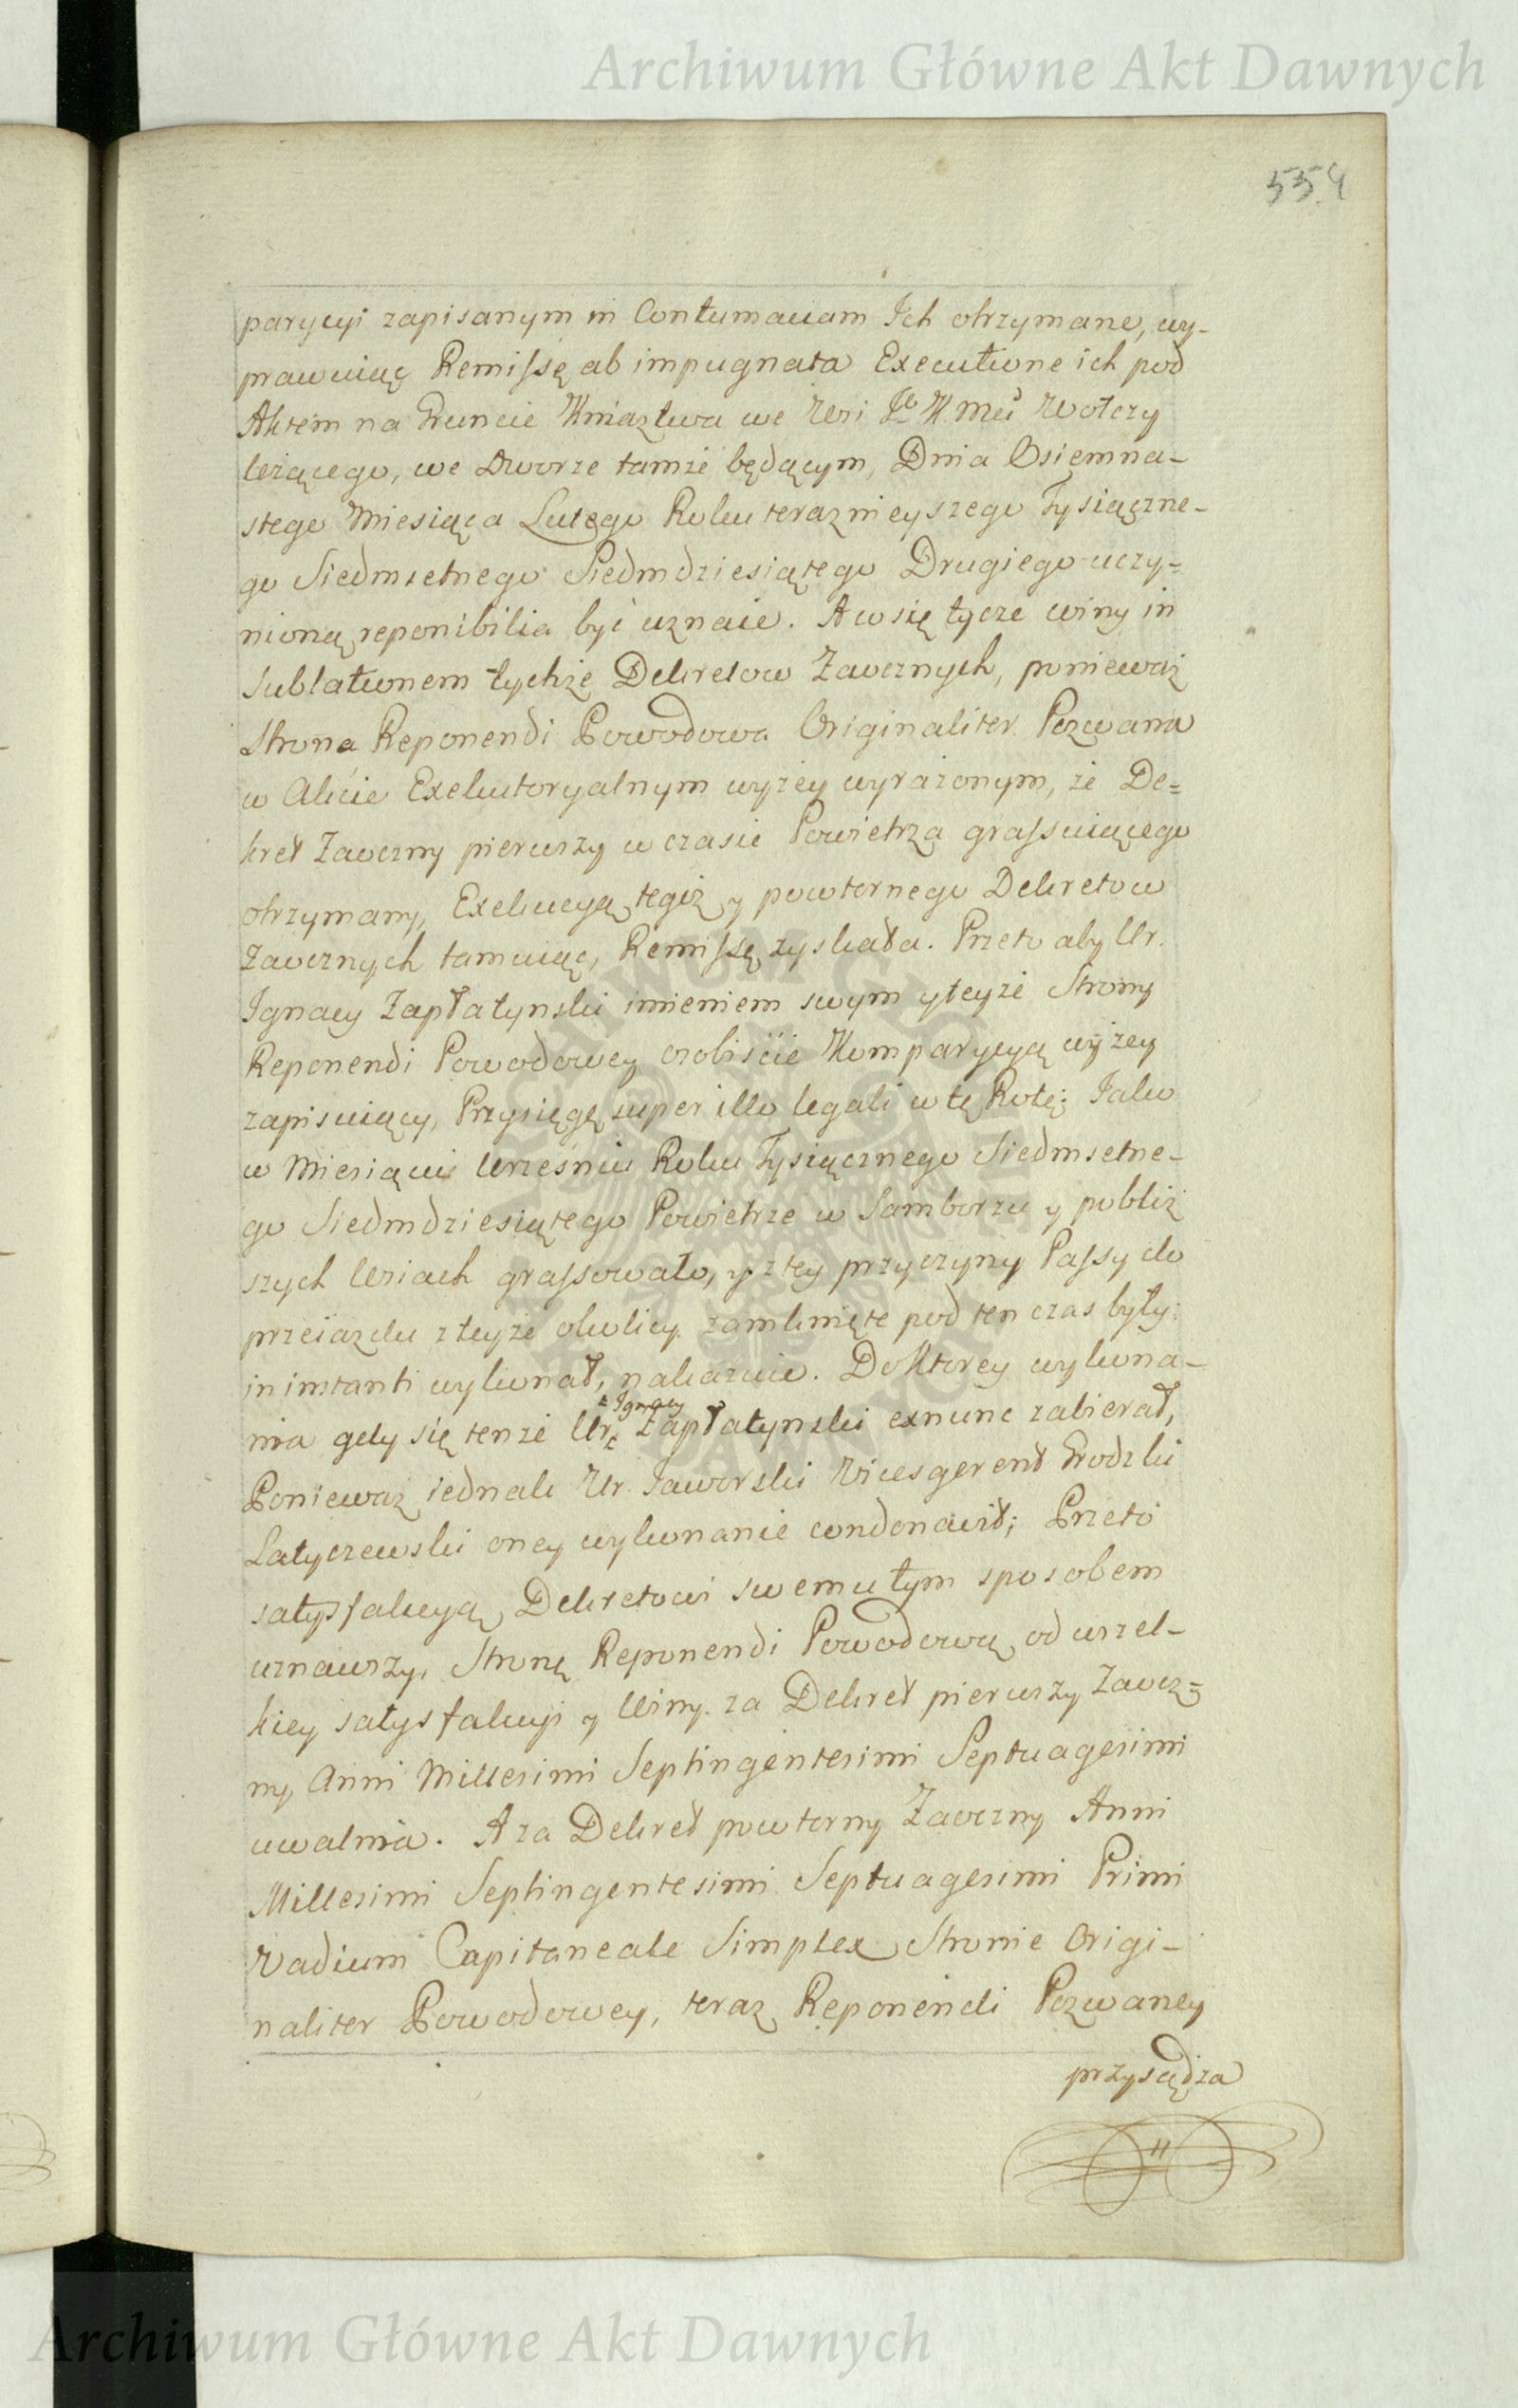 Archiwum Główne Akt Dawnych
554
parycyi zapisanym in Contumaciam Ich otrzymane, wy-
prawuiąc Remissę ab impugnata Executione ich pod
Aktem na Gruncie Kniaztwa we Wsi Je K Mci Wołczy
leżącego, we Dworze tamże będącym, Dnia Osiemna-
stego Miesiąca Lutego Roku teraznieyszego Tysiączne-
go Siedmsetnego Siedmdziesiątego Drugiego uczy-
nioną reponibilia być uznaie. A co się tycze winy in
Sublationem tychże Dekretow Zaocznych, ponieważ
Strona Reponendi Powodowa Originaliter Pozwana
w Akcie Exekutoryalnym wyżey wyrażonym, że De-
kret Zaoczny pierwszy w czasie Powietrza grassuiącego
otrzymany, Exekucyą tegoż y powtornego Dekretow
Zaocznych tamuiąc, Remissę zyskała. Przeto aby Ur.
Ignacy Zapłatynski imieniem swym y teyże Strony
Reponendi Powodowey osobiście Komparycyą wyżey
zapisuiący, Przysięgę super illo legali w tę Rotę: Jako
w Miesiącu Wrześniu Roku Tysiącznego Siedmsetne-
go Siedmdziesiątego Powietrze w Samborzu y pobliż
szych Wsiach grassowało, y z tey przyczyny Passy do
przeiazdu z teyże okolicy zamknięte pod ten czas były:
in instanti wykonał, nakazuie. Do Ktorey wykona-
Ignacy
nia gdy się tenże Ur. Zapłatynski exnunc zabierał,
Ponieważ iednak Ur. Jaworski Vicesgerent Grodzki
Latyczewski oney wykonanie condonawił; Przeto
satysfakcyą Dekretowi swemu tym sposobem
uznawszy, Stronę Reponendi Powodową od wszel-
kiey satysfakcyi y Winy za Dekret pierwszy Zaocz-
ny Anni Millesimi Septingentesimi Septuagesimi
uwalnia. A za Dekret powtorny Zaoczny Anni
Millesimi Septingentesimi Septuagesimi Primi
Vadium Capitaneale Simplex Stronie Origi-
naliter Powodowey, teraz Reponendi Pozwaney
przysądza
Archiwum Główne Akt Dawnych